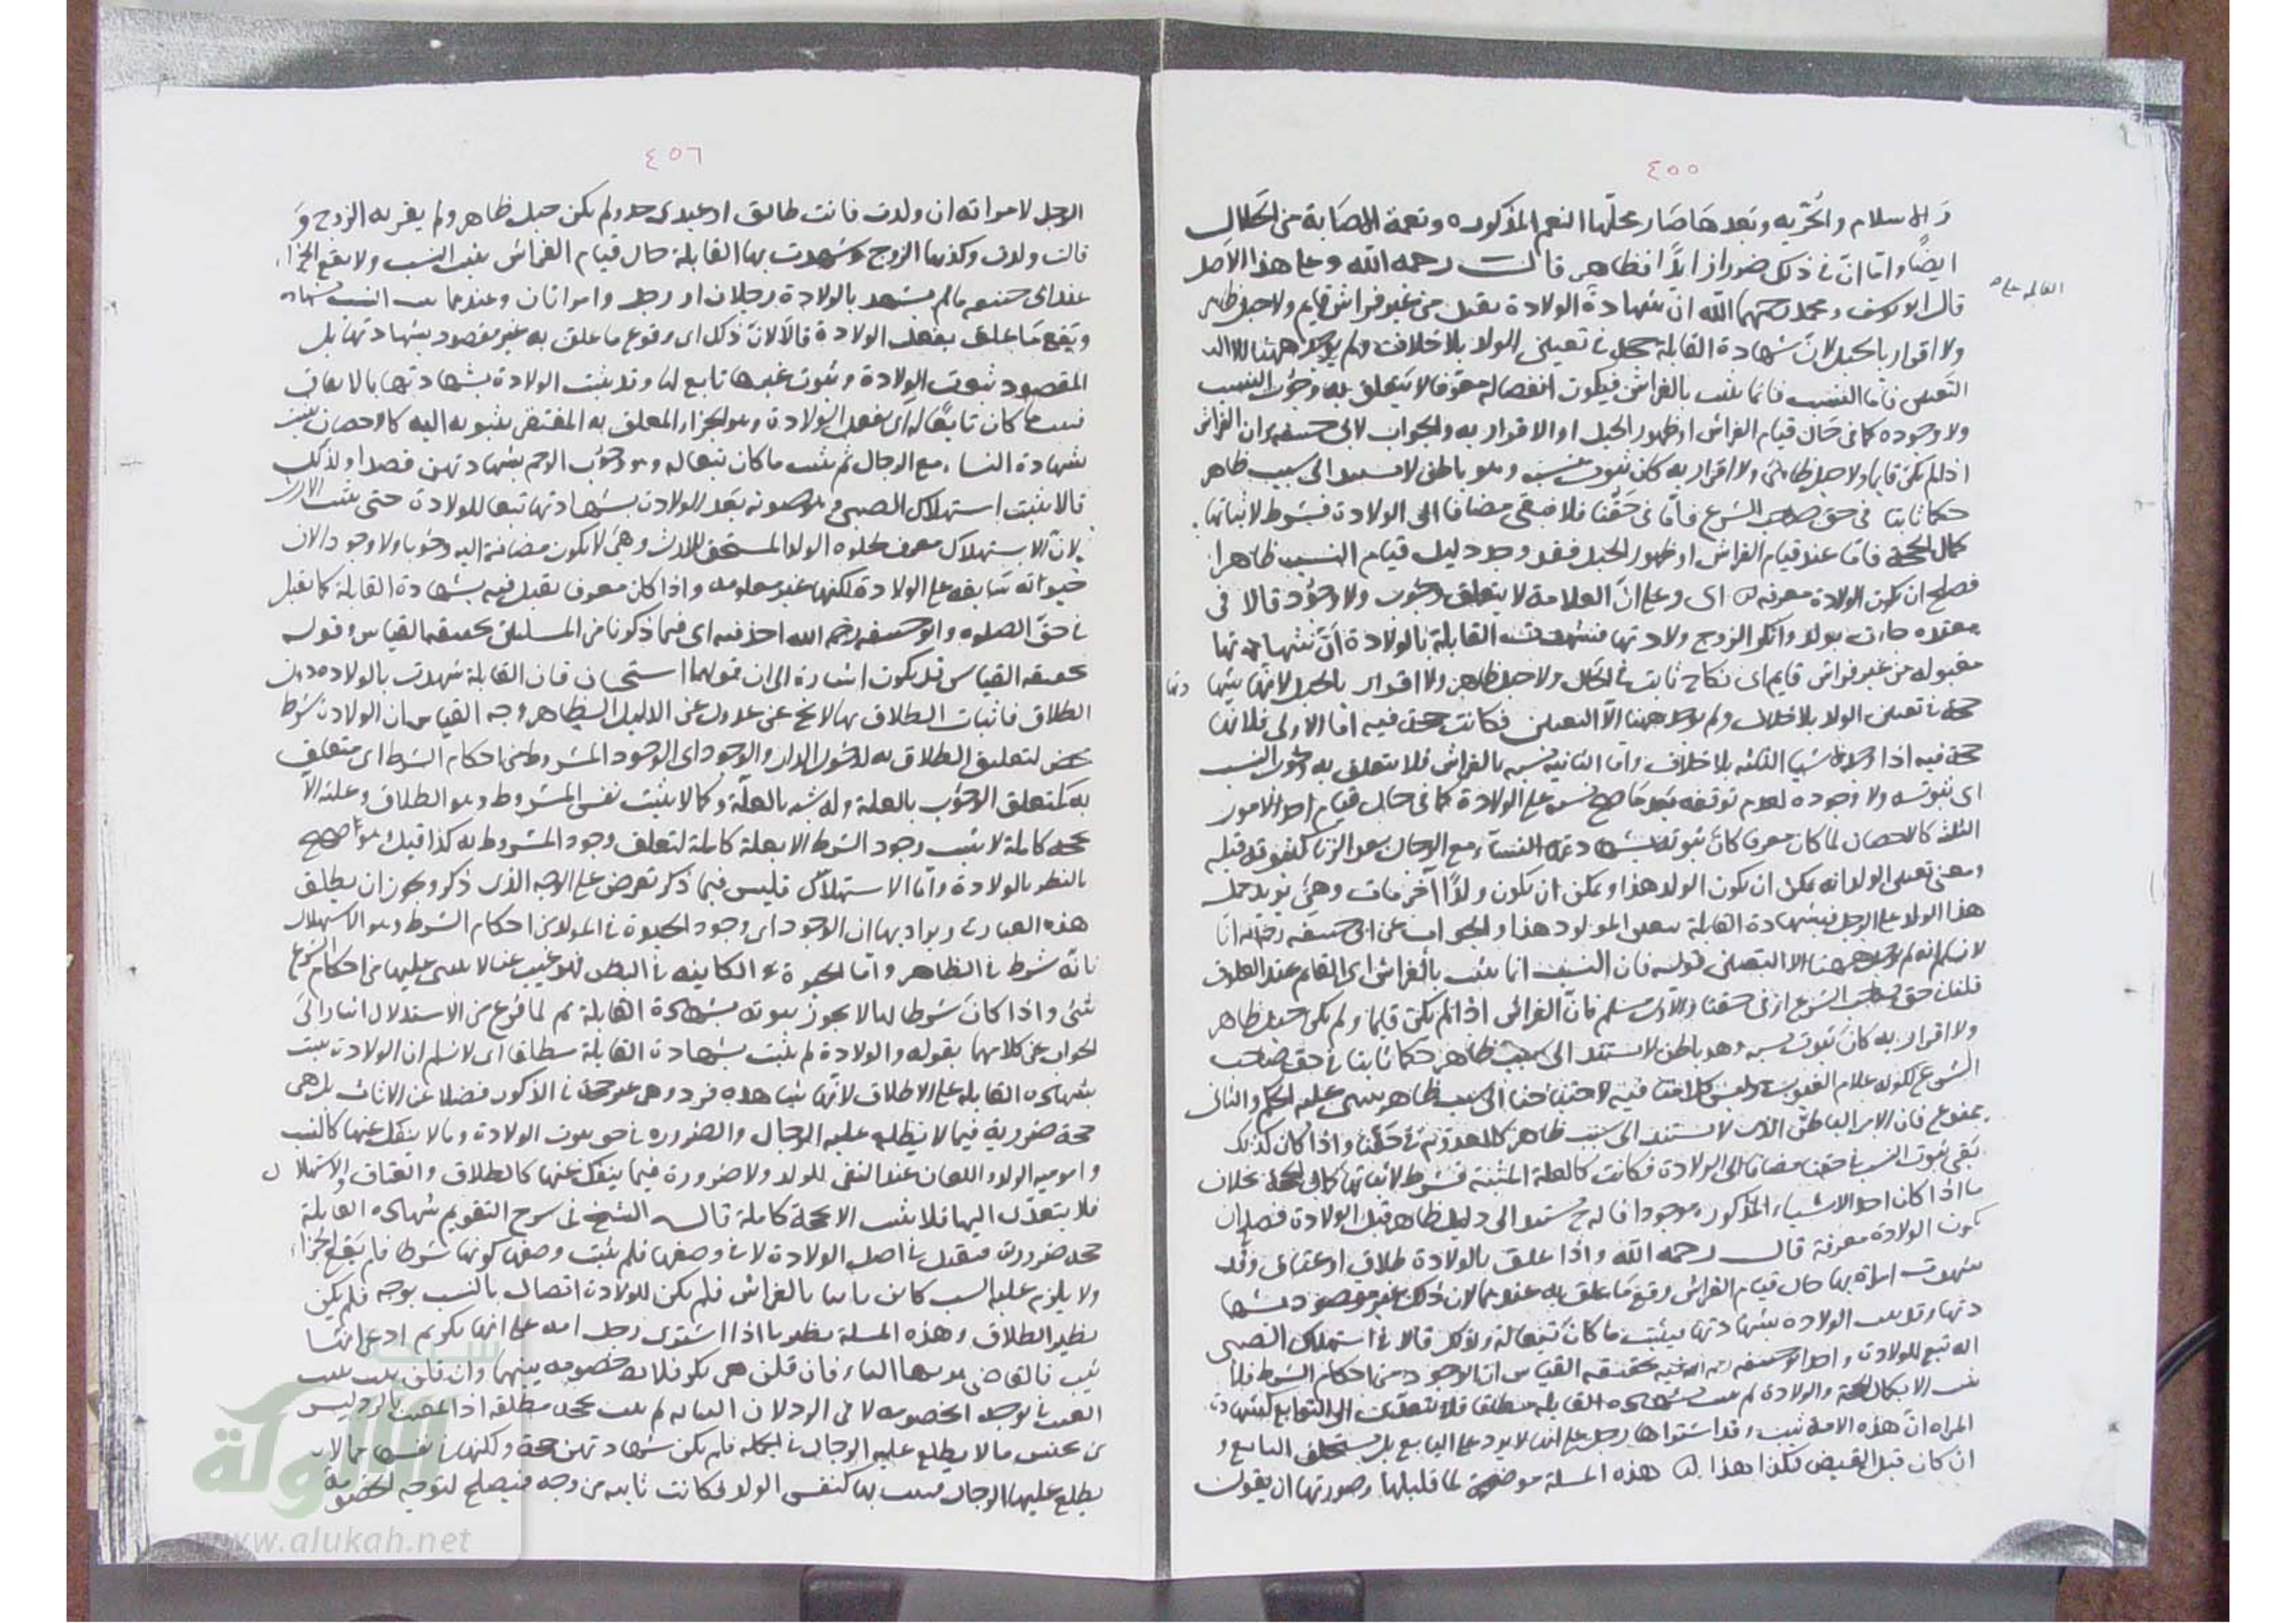 ٤٥٥
والاسلام والحرية وبعدها صار محلها النعم المذكورة ونعمة الاصابة من الحلال
ايضا واما ان في ذلك ضررا زايدا فظاهر قال رحمه الله وعلى هذا الاصل
قال ابو يوسف ومحمد رحمهما الله ان شهادة الولادة تقبل من غير فراش قايم ولا حبل ظاهر
ولا اقرار بالحبل لان شهادة القابلة حجة في تعيين الولد بلا خلاف ولم يوجد ههنا الا
التعيين فاما النسب فانما يثبت بالفراش فيكون انفصاله معرفا لا يتعلق به وجوب النسب
ولا وجوده كما في حال قيام الفراش او ظهور الحبل او الاقرار به والجواب لابي حنيفة ان الفراش
اذا لم يكن قايما ولا حبل ظاهر ولا اقرار به كان ثبوت نسبه وهو باطن لا يستند الى سبب ظاهر
حكما ثابتا في حق صاحب الشرع فاما في حقنا فلا فبقي مضافا الى الولادة فشرط لاثباتها
كمال الحجة فاما عند قيام الفراش او ظهور الحبل فقد وجد دليل قيام النسب ظاهرا
فصلح ان تكون الولادة معرفة له اي وعلى ان العلامة لا يتعلق بها وجوب ولا وجود قالا في
معتدة جاءت بولد وانكر الزوج ولادتها فشهدت القابلة بالولادة ان شهادتها
مقبولة من غير فراش قايم اي نكاح ثابت في الحال ولا حبل ظاهر ولا اقرار بالحبل لان شهادتها
حجة في تعيين الولد بلا خلاف ولم يوجد ههنا الا التعيين فكانت حجة فيه اما الاولى فلانها
حجة فيه اذا وجد الاشيا الثلثة بلا خلاف واما الثانية فنسبه بالفراش فلا يتعلق به وجوب النسب
اي ثبوته ولا وجوده لعدم توقفه على الولادة كما في حال قيام احد الامور
الثلثة كالاحصان لما كان معرفا كان ثبوته بشهادة النساء مع الرجال بعد الزنا كثبوته قبله
ومعنى تعيين الولد انه يمكن ان يكون الولد هذا ويمكن ان يكون ولدا آخر مات وهي تريد حمل
هذا الولد على الرجل فبشهادة القابلة يتعين المولود هذا والجواب عن ابي حنيفة رحمه الله انا
لا نسلم انه لم يوجد ههنا الا التعيين قوله فان النسب انما يثبت بالفراش اي القايم عند العلوق
قلنا في حق صاحب الشرع او في حقنا والاول مسلم فان الفراش اذا لم يكن قايما ولم يكن حبل ظاهر
ولا اقرار به كان ثبوت نسبه وهو باطن لا يستند الى سبب ظاهر حكما ثابتا في حق صاحب
الشرع لكونه علام الغيوب وليس كلامنا فيه لاحتياجنا الى سبب ظاهر يبنى عليه الحكم والثاني
ممنوع فان الامر الباطن الذي لا يستند الى سبب ظاهر كالمعدوم في حقنا واذا كان كذلك
بقي ثبوت النسب في حقنا مضافا الى الولادة فكانت كالعلة المثبتة فشرط لاثباتها كمال الحجة بخلاف
ما اذا كان احد الاشياء المذكورة موجودا فانه ح مستند الى دليل ظاهر قبل الولادة فصلح ان
تكون الولادة معرفة قال رحمه الله واذا علق بالولادة طلاق او عتاق وقد
شهدت امراة بها حال قيام الفراش وقع ما علق به عندهما لان ذلك غير مقصود بشها
دتها وقد ثبت الولادة بشهادتها فيثبت ما كان تبعا له ولذلك قالا في استهلال الصبي
انه تبع للولادة واخذ ابو حنيفة رحمه الله فيه بحقيقة القياس ان الوجود من احكام الشرط فلا
يثبت الا بكمال الحجة والولادة لم يثبت بشهادة القابلة مطلقا فلا تتعدى الى التوابع كشهادة
المراة ان هذه الامة ثيب وقد اشتراها رجل على انها لا يرد على البايع بل يستحلف البايع و
ان كان قبل القبض فكذا هذا هذه المسلة موضحة لما قبلها وصورتها ان يقول
٤٥٦
الرجل لامراته ان ولدت فانت طالق او عبدي حر ولم يكن حبل ظاهر ولم يقر به الزوج و
قالت ولدت وكذبها الزوج وشهدت بها القابلة حال قيام الفراش يثبت النسب ولا يقع الجزاء
عند ابي حنيفة ما لم يشهد بالولادة رجلان او رجل وامراتان وعندهما يثبت النسب بشهادة
ويقع ما علق بفعل الولادة قالا لان ذلك اي وقوع ما علق به غير مقصود بشهادتها بل
المقصود ثبوت الولادة وثبوت غيرها تابع لها وقد يثبت الولادة بشهادتها بالاتفاق
فيثبت ما كان تابعا له اي بفعل الولادة وهو الجزاء المعلق به المفتقر بثبوته اليه كالاحصان يثبت
بشهادة النساء مع الرجال ثم يثبت ما كان تبعا له وهو وجوب الرجم بشهادتهن قصدا ولذلك
قالا يثبت استهلال الصبي بعد الولادة بشهادتها تبعا للولادة حتى يثبت الارث
لان الاستهلال معرف لحيوة الولد المستحق للارث وهي لا يكون مضافة اليه وجوبا ولا وجودا لان
حيوته سابقة على الولادة لكنها غير معلومة واذا كان معرفا يقبل فيه بشهادة القابلة كما يقبل
في حق الصلوة وابو حنيفة رحمه الله اخذ فيه اي فيما ذكرنا من المسلتين بحقيقة القياس وقوله
بحقيقة القياس قد يكون اشارة الى ان قولهما استحسان فان القابلة شهدت بالولادة دون
الطلاق فاثبات الطلاق بها لا يخ عن عدول عن الدليل الظاهر وجه القياس ان الولادة شرط
محض لتعليق الطلاق به كدخول الدار والوجود اي الوجود المشروط من احكام الشرط اي متعلق
به كتعلق الوجوب بالعلة وله شبه بالعلة وكما لا يثبت نفس المشروط وهو الطلاق وعلته الا
بحجة كاملة لا يثبت وجود الشرط الا بعلة كاملة لتعلق وجود المشروط به كذا قيل وهو واضح
بالنظر بالولادة واما الاستهلال فليس فيما ذكر تعرض على الوجه الذي ذكر ويجوز ان يطلق
هذه العبارة ويراد بها ان الوجود اي وجود الحيوة في المولد من احكام الشرط وهو الاستهلال
فانه شرط في الظاهر واما الحيوة الكاينة في البطن فهو غيب عنا لا يبنى عليها من احكام الشرع
شئ واذا كان شرطا لها لا يجوز ثبوته بشهادة القابلة ثم لما فرغ من الاستدلال اشار الى
الجواب عن كلامهما بقوله والولادة لم يثبت بشهادة القابلة مطلقا اي لا نسلم ان الولادة يثبت
بشهادة القابلة على الاطلاق لانها شهادة فرد وهي غير حجة في الذكور فضلا عن الاناث بل هي
حجة ضرورية فيما لا يطلع عليه الرجال والضرورة في حق ثبوت الولادة وما لا ينفك عنها كالنسب
واموية الولد واللعان عند النفي للولد ولا ضرورة فيما ينفك عنها كالطلاق والعتاق والاستهلال
فلا يتعدى اليها فلا يثبت الا بحجة كاملة قال الشيخ في شرح التقويم شهادة القابلة
حجة ضرورة فيقبل في اصل الولادة لا في وصفها فلم يثبت وصفها كونها شرطا فلم يقع الجزاء
ولا يلزم عليه النسب كان ثابتا بالفراش فلم يكن للولادة اتصال بالنسب بوجه فلم يكن
نظير الطلاق وهذه المسلة نظير ما اذا اشترى رجل امة على انها بكر ثم ادعى انها
ثيب فالقاضي يريها النساء فان قلن هي بكر فلا خصومة بينهما وان قلن ثيب يثبت
العيب في توجه الخصومة لا في الرد لان الثيابة لم يثبت بحجة مطلقة اذ المعيب بالرد ليس
من جنس ما لا يطلع عليه الرجال في الجملة فلم يكن شهادتهن حجة ولكنها في نفسها مما لا
يطلع عليها الرجال فيثبت بها كنفس الولد فكانت ثابتة من وجه فيصلح لتوجه الخصومة
الألوكة
www.alukah.net